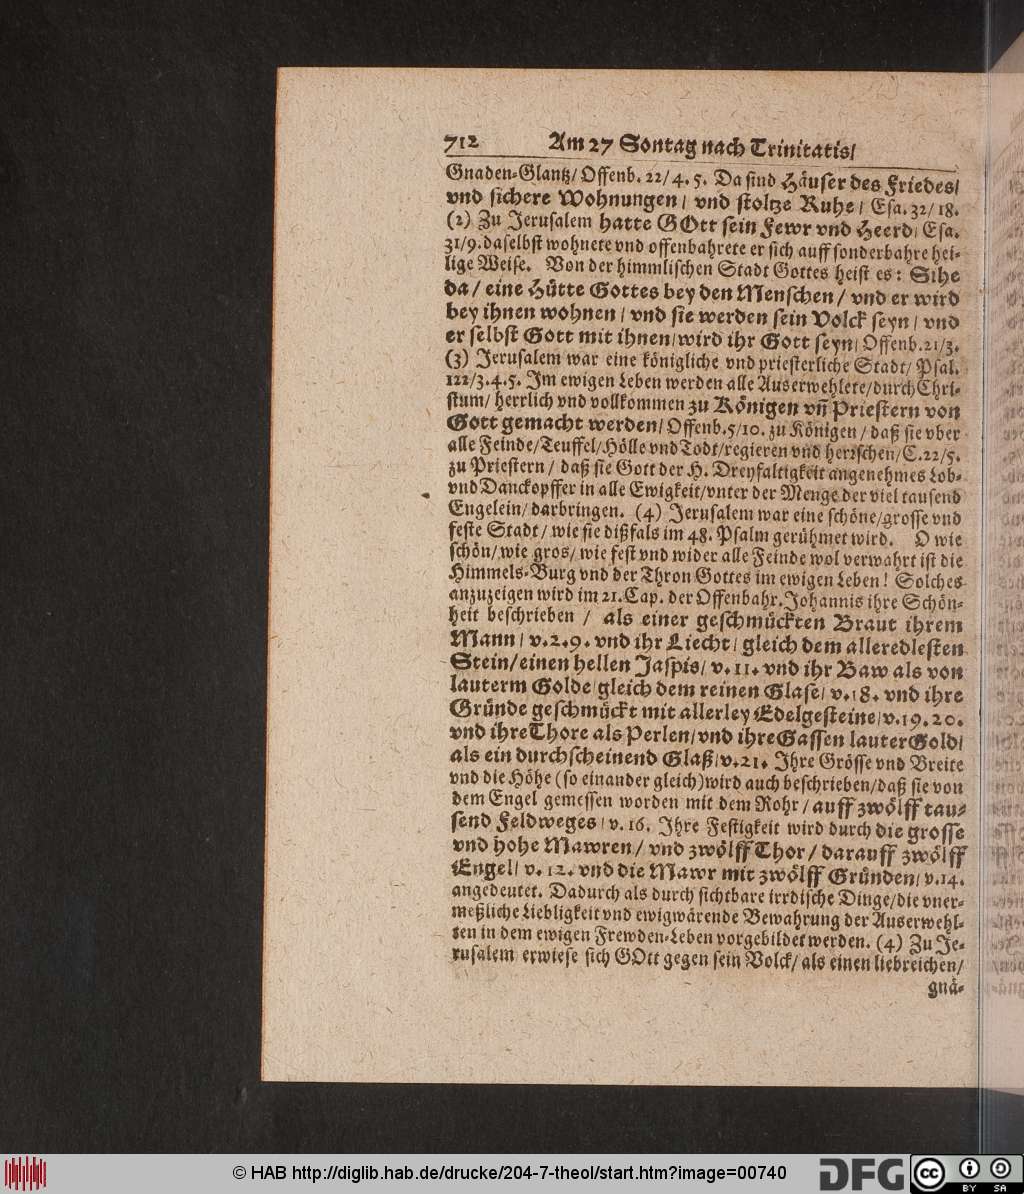 712 Am 27 Sontag nach Trinitatis/
Gnaden-Glantz/ Offenb. 22/4. 5. Da sind Häuser des Friedes/
vnd sichere Wohnungen/ vnd stoltze Ruhe/ Esa. 32/18.
(2) Zu Jerusalem hatte GOtt sein Fewr vnd Heerd/ Esa.
31/9. daselbst wohnete vnd offenbahrete er sich auff sonderbahre hei-
lige Weise. Von der himmlischen Stadt Gottes heist es: Sihe
da/ eine Hütte Gottes bey den Menschen/ vnd er wird
bey ihnen wohnen/ vnd sie werden sein Volck seyn/ vnd
er selbst Gott mit ihnen/ wird ihr Gott seyn/ Offenb. 21/3.
(3) Jerusalem war eine königliche vnd priesterliche Stadt/ Psal.
122/3. 4. 5. Im ewigen Leben werden alle Auserwehlete/ durch Chri-
stum/ herrlich vnd vollkommen zu Königen vñ Priestern von
Gott gemacht werden/ Offenb. 5/10. zu Königen/ daß sie vber
alle Feinde/ Teuffel/ Hölle vnd Todt/ regieren vnd herrschen/ C. 22/5.
zu Priestern/ daß sie Gott der H. Dreyfaltigkeit angenehmes Lob-
vnd Danckopffer in alle Ewigkeit/ vnter der Menge der viel tausend
Engelein/ darbringen. (4) Jerusalem war eine schöne/ grosse vnd
feste Stadt/ wie sie dißfals im 48. Psalm gerühmet wird. O wie
schön/ wie gros/ wie fest vnd wider alle Feinde wol verwahrt ist die
Himmels-Burg vnd der Thron Gottes im ewigen Leben! Solches
anzuzeigen wird im 21. Cap. der Offenbahr. Johannis ihre Schön-
heit beschrieben / als einer geschmückten Braut ihrem
Mann/ v. 2. 9. vnd ihr Liecht/ gleich dem alleredlesten
Stein/ einen hellen Jaspis/ v. 11. vnd ihr Baw als von
lauterm Golde/ gleich dem reinen Glase/ v. 18. vnd ihre
Gründe geschmückt mit allerley Edelgesteine/ v. 19. 20.
vnd ihre Thore als Perlen/ vnd ihre Gassen lauter Gold/
als ein durchscheinend Glaß/ v. 21. Ihre Grösse vnd Breite
vnd die Höhe (so einander gleich) wird auch beschrieben/ daß sie von
dem Engel gemessen worden mit dem Rohr/ auff zwölff tau-
send Feldweges/ v. 16. Ihre Festigkeit wird durch die grosse
vnd hohe Mawren/ vnd zwölff Thor/ darauff zwölff
Engel/ v. 12. vnd die Mawr mit zwölff Gründen/ v. 14.
angedeutet. Dadurch als durch sichtbare irrdische Dinge/ die vner-
meßliche Liebligkeit vnd ewigwärende Bewahrung der Auserwehl-
ten in dem ewigen Frewden-Leben vorgebildet werden. (4) Zu Je-
rusalem erwiese sich GOtt gegen sein Volck/ als einen liebreichen/
gnä-
© HAB http://diglib.hab.de/drucke/204-7-theol/start.htm?image=00740
DFG
cc BY SA